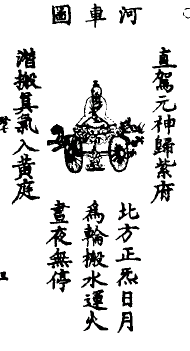 河車圖
直駕元神歸紫府
潛搬真氣入黃庭
北方正炁日月
爲輪搬水運火
晝夜無停